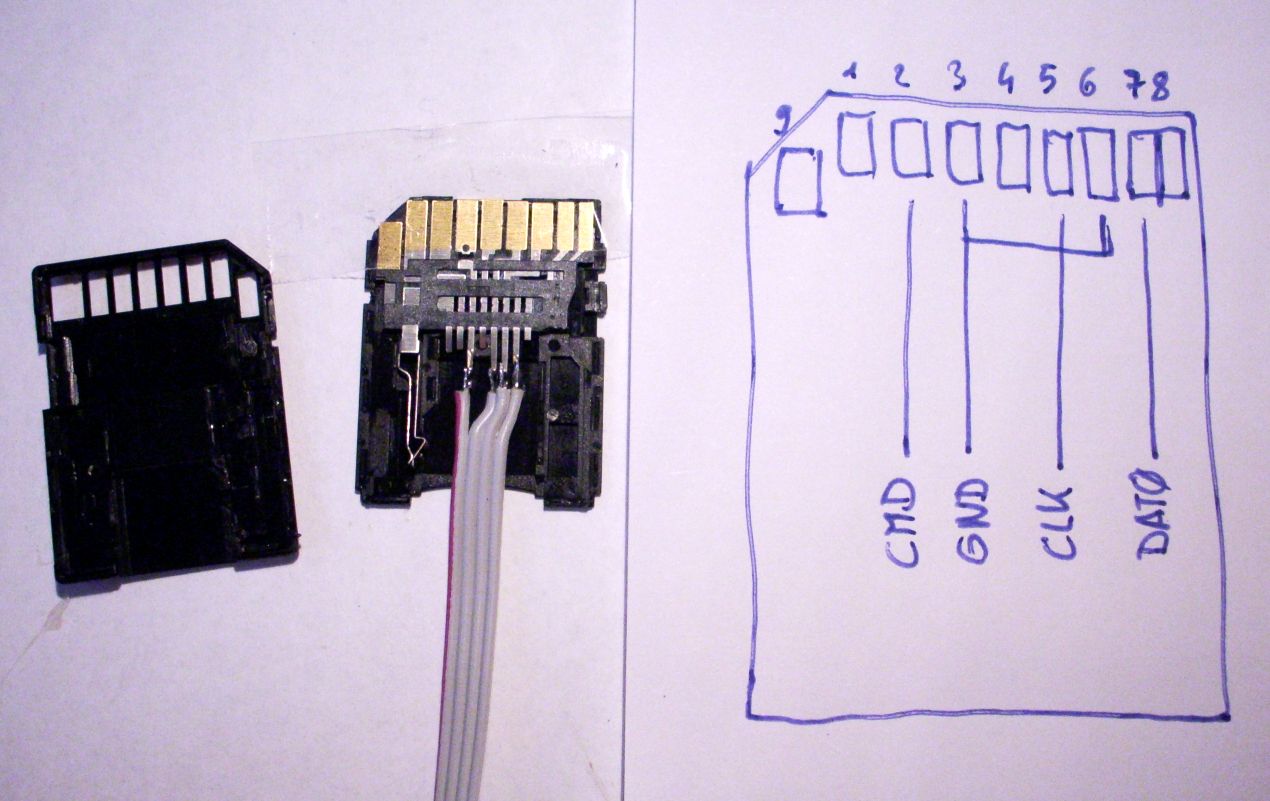 1 2 3 4 5 6 7 8
9
CMD GND CLK DATØ